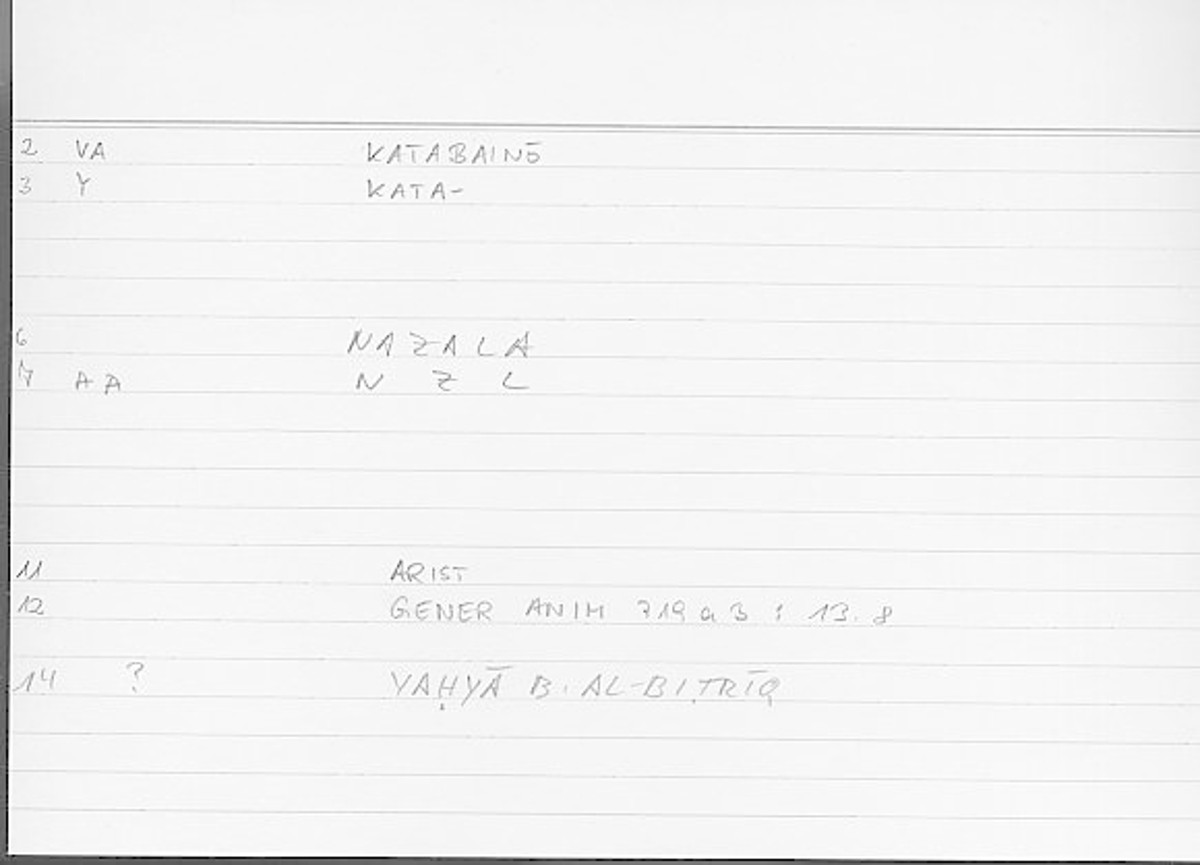 2 VA KATABAINŌ
3 Y KATA-
6 NAZALA
7 AA N Z L
11 ARIST
12 GENER ANIM 719 a 3 : 13.8
14 ? YAḤYĀ B. AL-BIṬRĪQ